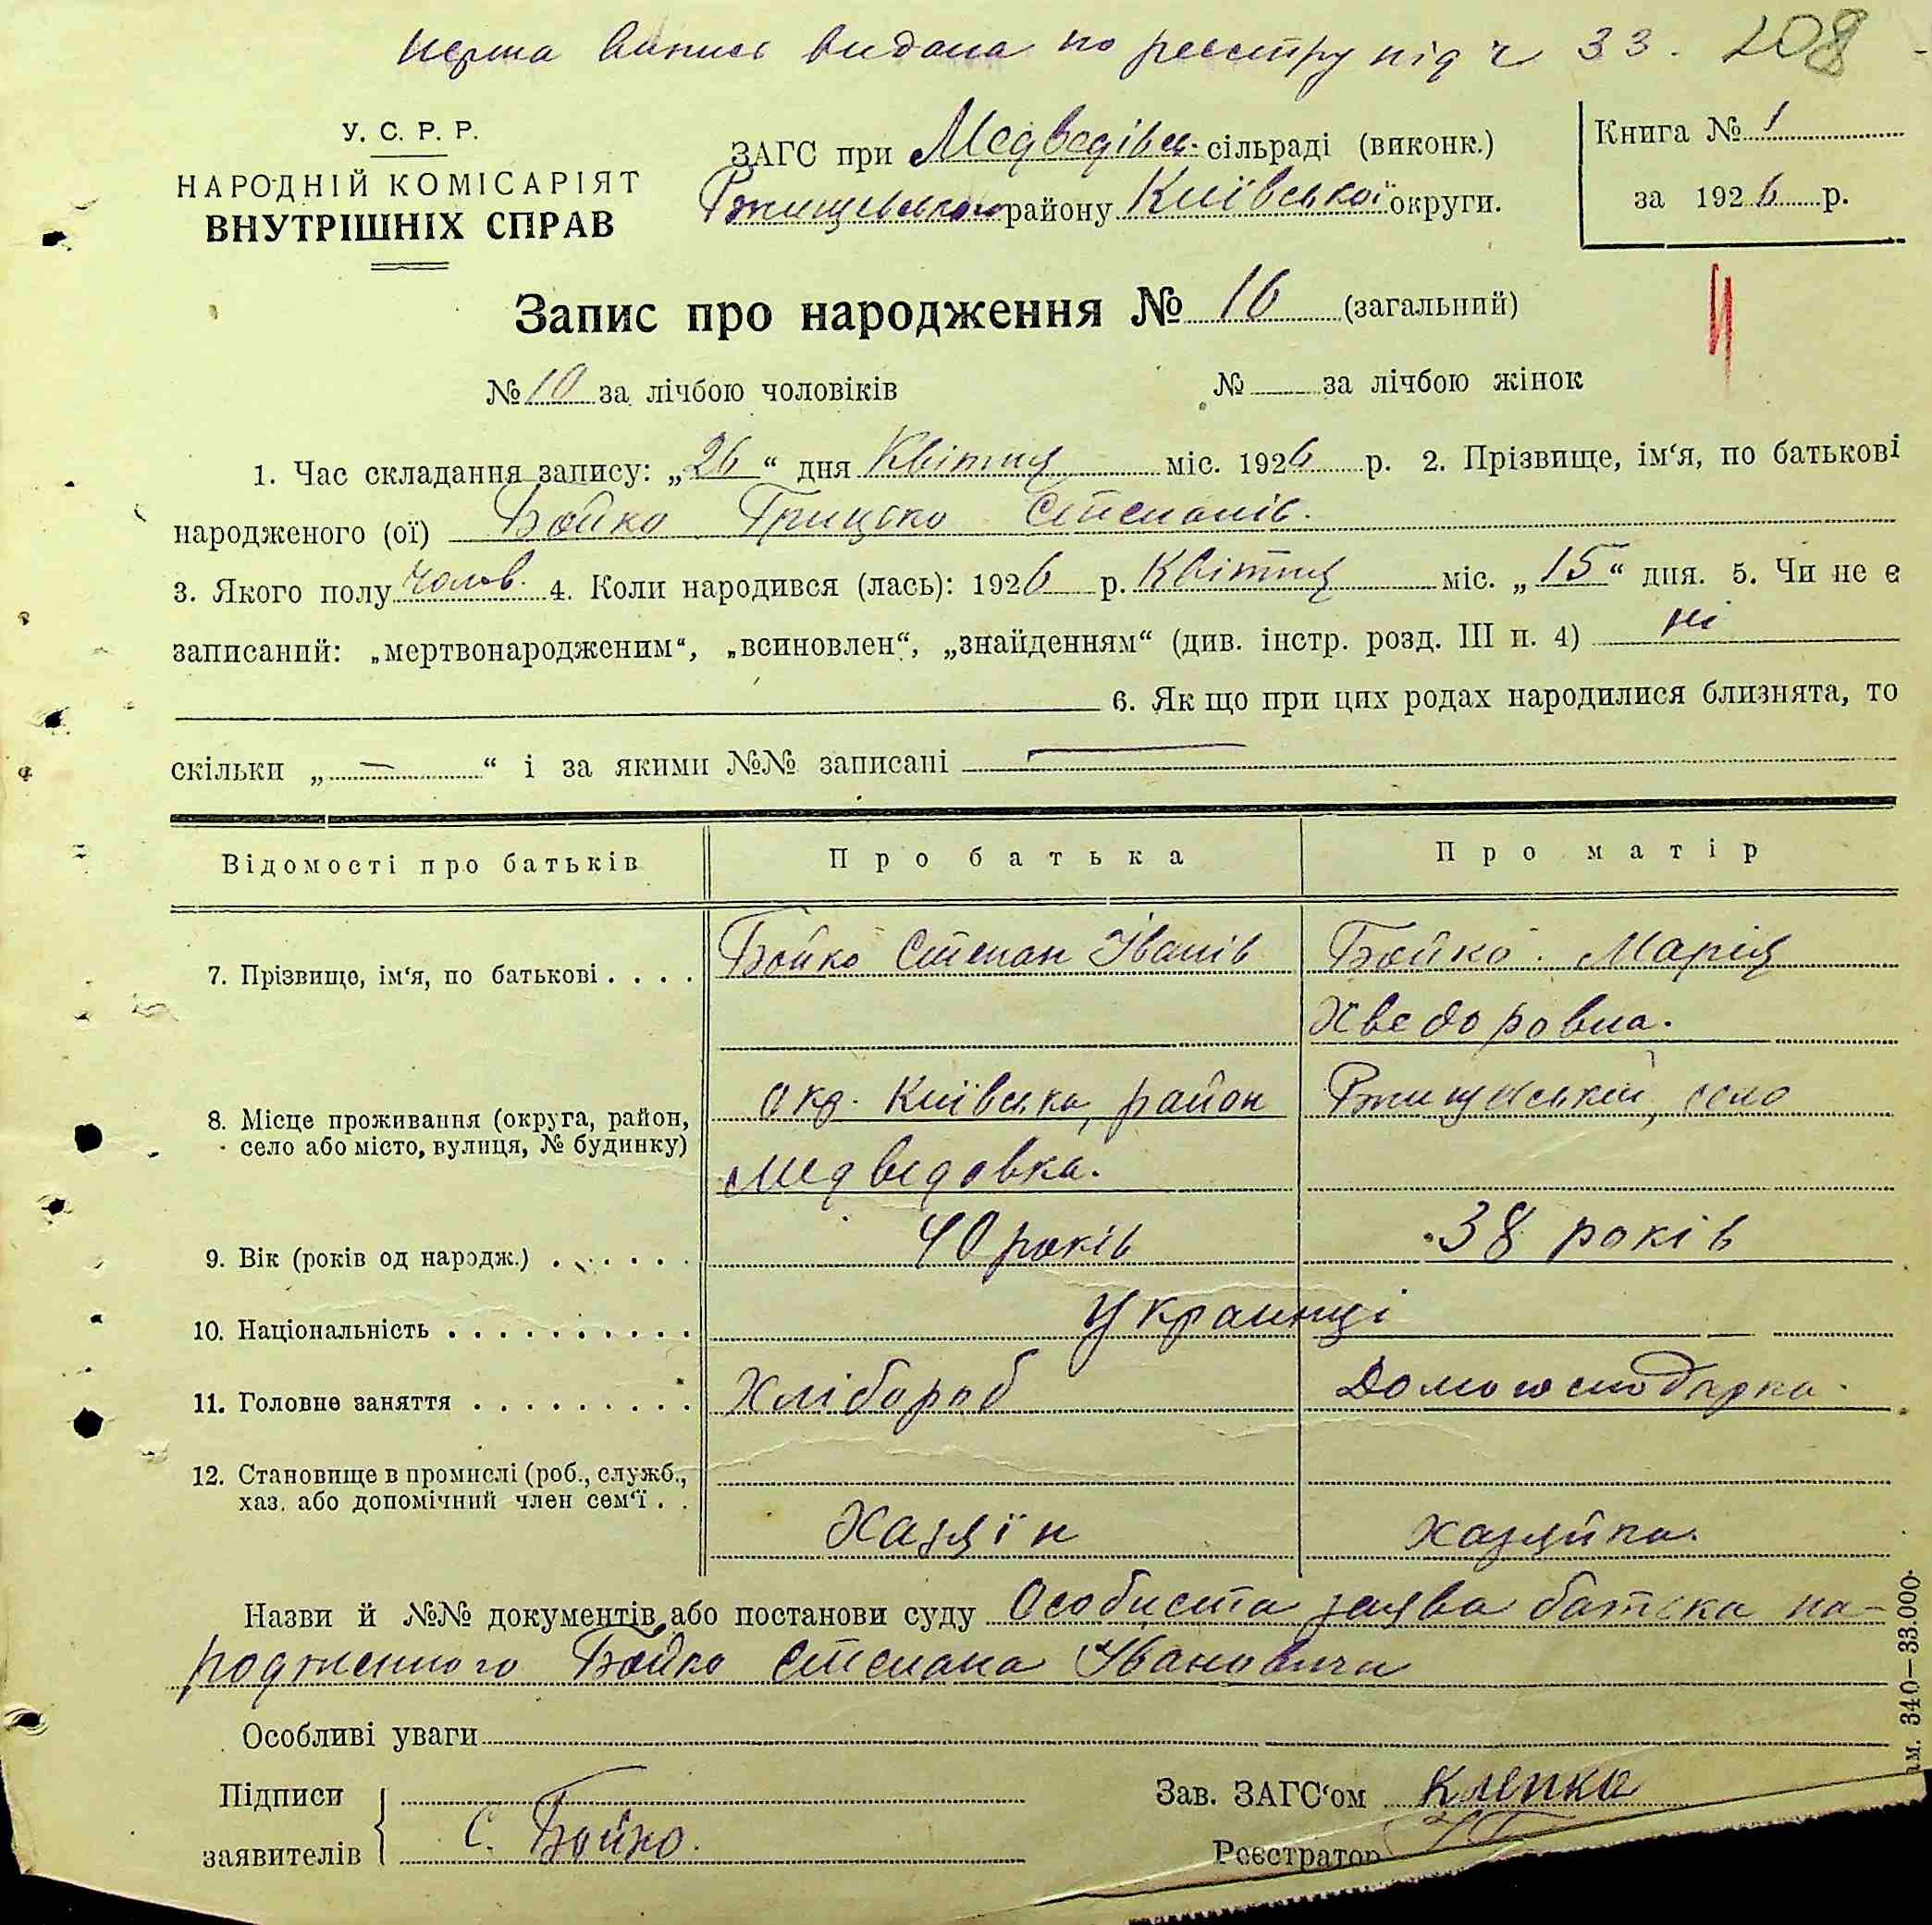 перша випись видана по реєстру під ч 33. 208
У. С. Р. Р.
НАРОДНІЙ КОМІСАРІЯТ
ВНУТРІШНІХ СПРАВ
ЗАГС при Медведівсь. сільраді (виконк.)
Ржищевського району Київської округи.
Книга № 1
за 1926 р.
Запис про народження № 16 (загальний)
№ 10 за лічбою чоловіків № за лічбою жінок
1. Час складання запису: „26“ дня Квітня міс. 1926 р. 2. Прізвище, ім‘я, по батькові
народженого (ої) Бойко Грицько Степанів.
3. Якого полу чолов. 4. Коли народився (лась): 1926 р. Квітня міс. „15“ дня. 5. Чи не є
записаний: „мертвонародженим“, „всиновлен“, „знайденням“ (див. інстр. розд. III п. 4) ні
6. Як що при цих родах народилися близнята, то
скільки „—“ і за якими №№ записані —
Відомості про батьків Про батька Про матір
7. Прізвище, ім‘я, по батькові . . . . Бойко Степан Іванів Бойко. Марія
Хведоровна.
8. Місце проживання (округа, район, окр. Київська, район Ржищевський, село
село або місто, вулиця, № будинку) Медведовка.
9. Вік (років од народж.) . . . . . . 40 років 38 років
10. Національність . . . . . . . . . . Українці
11. Головне заняття . . . . . . . . . Хлібороб Домогосподарка.
12. Становище в промислі (роб., служб.,
хаз. або допомічний член сем‘ї . . Хазяїн хазяйка.
Назви й №№ документів або постанови суду Особиста заява батька на-
родженного Бойко Степана Івановича
Особливі уваги
Підписи
заявителів С. Бойко.
Зав. ЗАГС‘ом Клепка
Реєстратор
340—33.000.